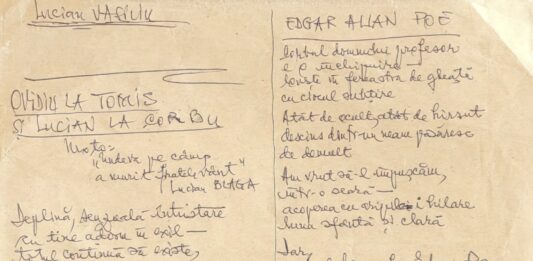 Lucian VASILIU
OVIDIU LA TOMIS
ȘI LUCIAN LA CORBU
Moto:
"undeva pe câmp
a murit fratele vânt"
Lucian BLAGA
Deplină, senzuală întristare
cu tine adorm în exil —
totul continuă să existe,
EDGAR ALLAN POE
Corbul domnului profesor
e o închipuire —
lovește în fereastra de gheață
cu ciocul subțire
Atât de ocultizat, de hirsut
descins dintr-un neam păsăresc
de demult
Am vrut să-l împușcăm,
într-o seară —
acoperea cu aripi hilare
luna sfântă și clară
Dar,